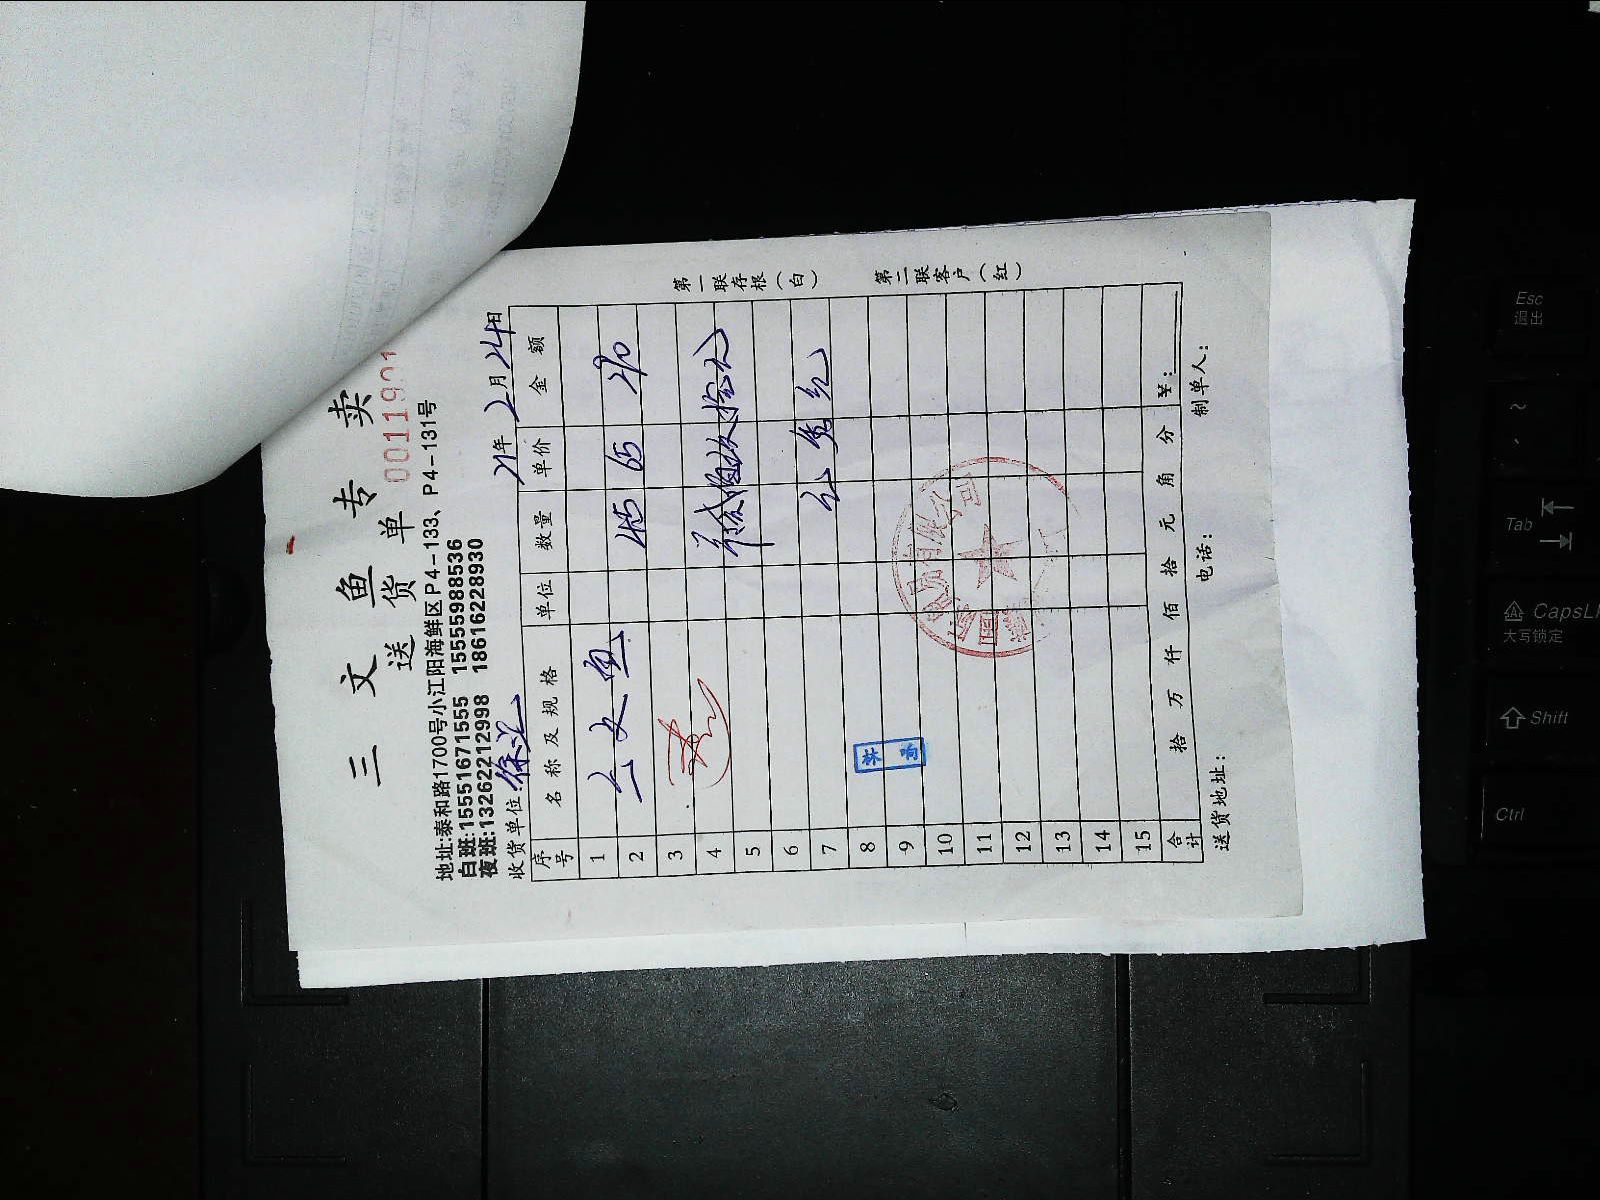 三文鱼专卖
送货单
0011901
地址:泰和路1700号小江阳海鲜区P4-133、P4-131号
白班:15516671555 15555988536
夜班:13262212998 18616228930
收货单位:徐汇 21年2月24日
序号 名称及规格 单位 数量 单价 金额
1 三文鱼
2 4.5 65 290
3
4 贰佰玖拾元
5
6
7
8
9
10
11
12
13
14
15
合计 拾 万 仟 佰 拾 元 角 分 ¥:
送货地址: 电话: 制单人:
第一联存根(白) 第二联客户(红)
Esc
退出
Tab
CapsL
大写锁定
Shift
Ctrl